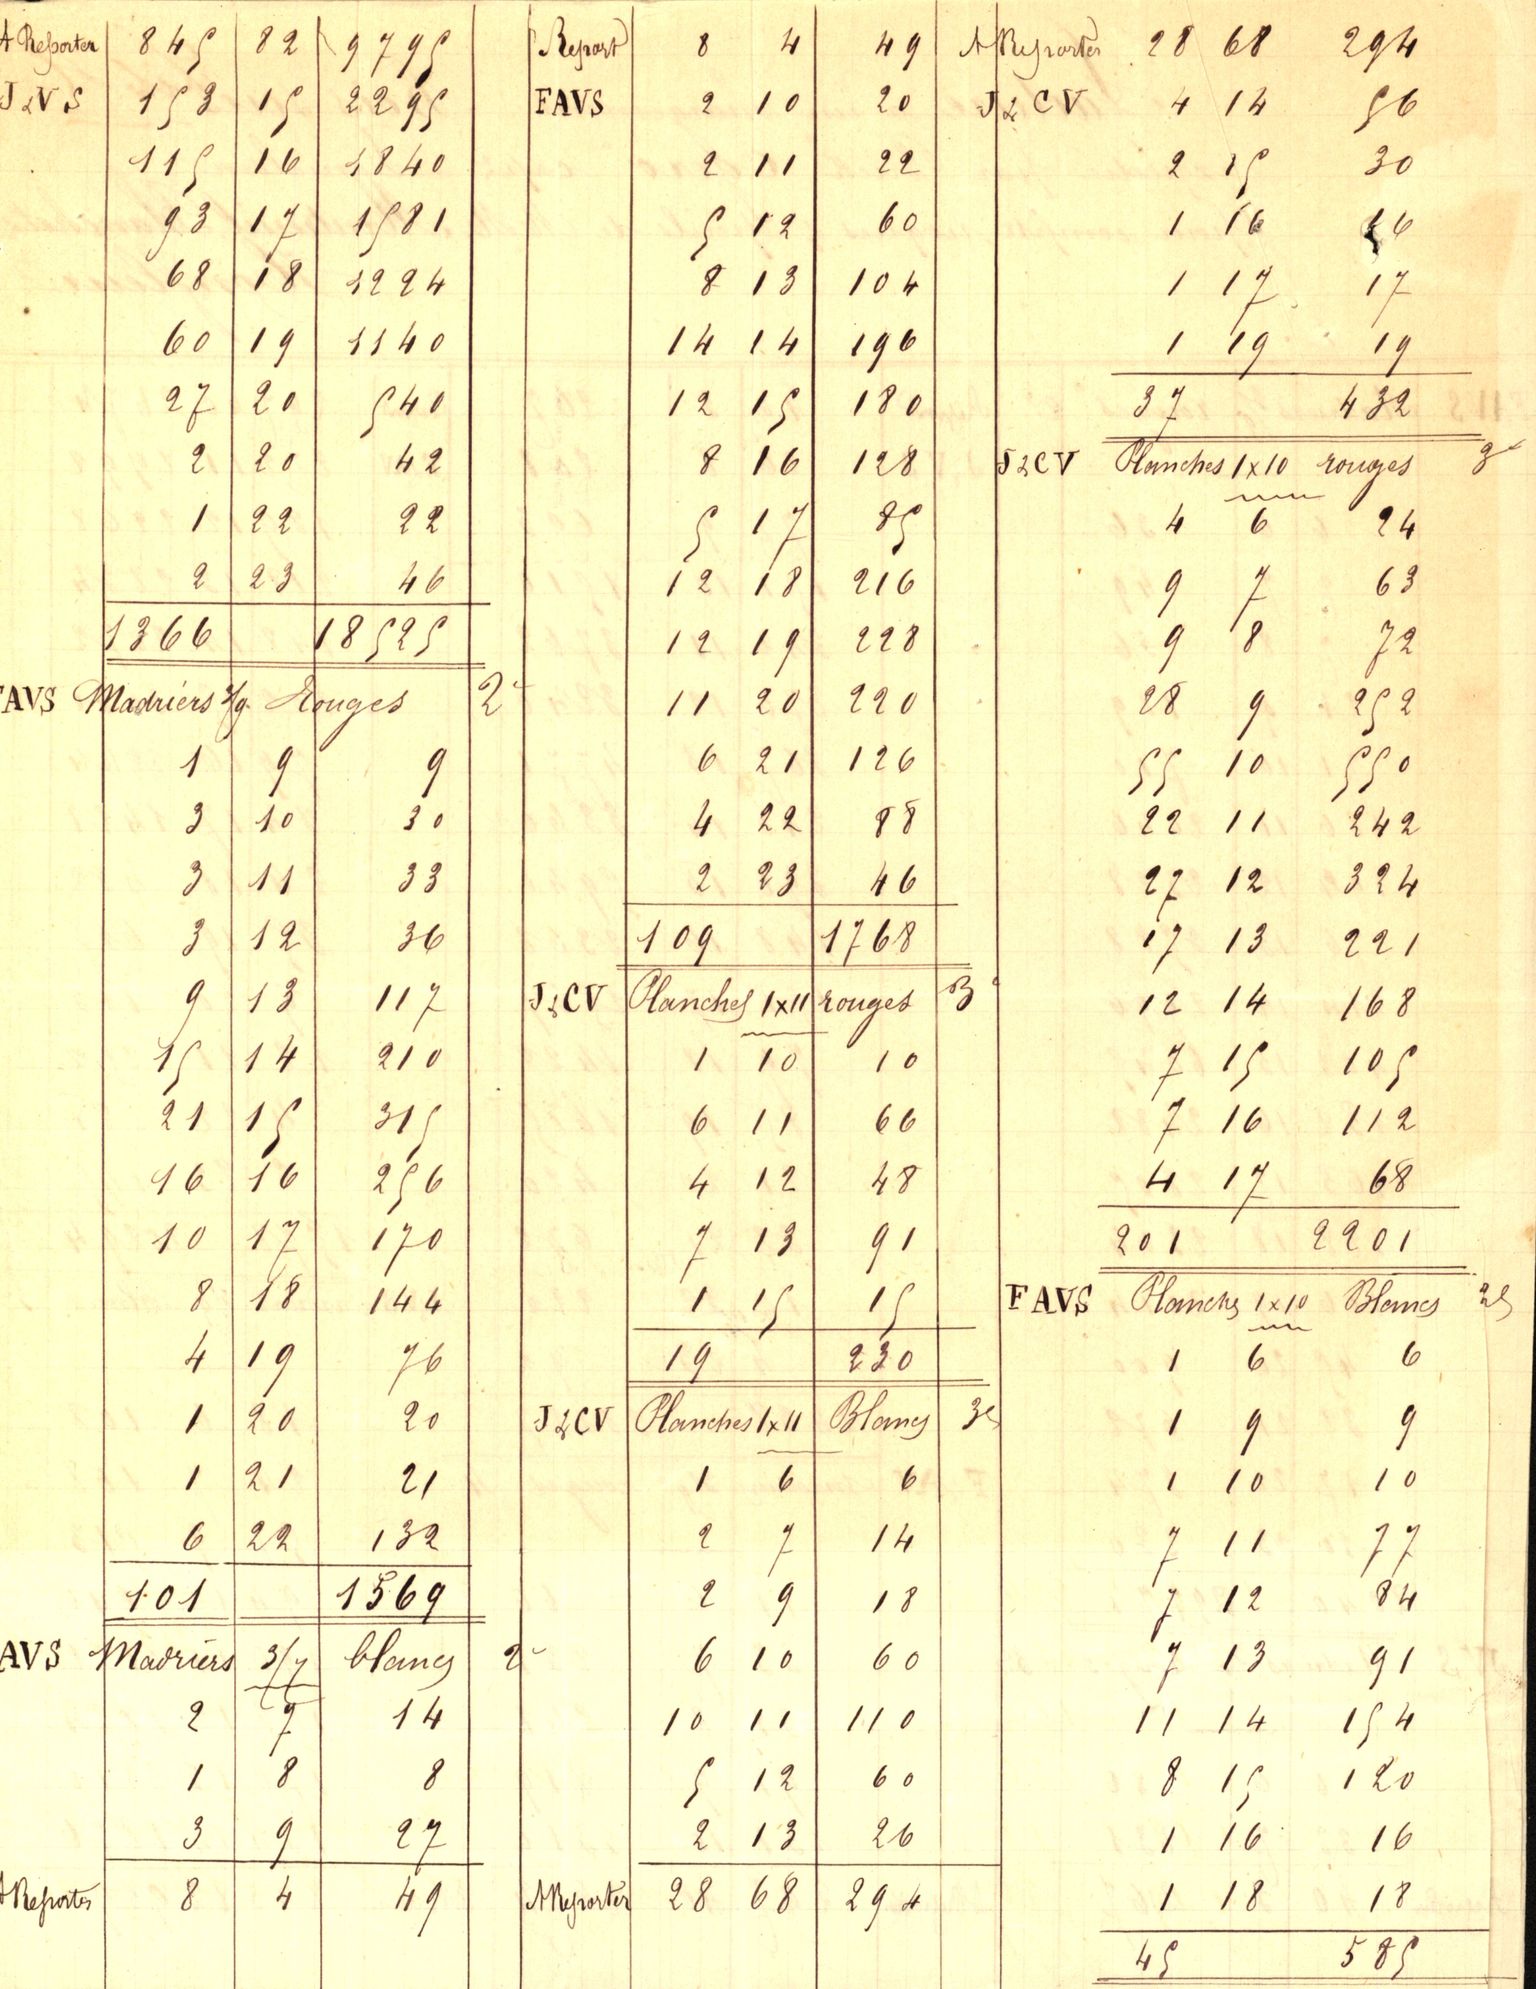 A Reporter 845 82 9795
J&VS 153 15 2295
115 16 1840
93 17 1581
68 18 1224
60 19 1140
27 20 540
2 20 42
1 22 22
2 23 46
1366 18525
FAVS Madriers 3/9 Rouges 2
1 9 9
3 10 30
3 11 33
3 12 36
9 13 117
15 14 210
21 15 315
16 16 256
10 17 170
8 18 144
4 19 76
1 20 20
1 21 21
6 22 132
101 1569
AVS Madriers 3/7 blancs 2
2 7 14
1 8 8
3 9 27
A Reporter 8 4 49
Report 8 4 49
FAVS 2 10 20
2 11 22
5 12 60
8 13 104
14 14 196
12 15 180
8 16 128
5 17 85
12 18 216
12 19 228
11 20 220
6 21 126
4 22 88
2 23 46
109 1768
J&CV Planches 1x11 rouges 3
1 10 10
6 11 66
4 12 48
7 13 91
1 15 15
19 230
J&CV Planches 1x11 Blancs 3e
1 6 6
2 7 14
2 9 18
6 10 60
10 11 110
5 12 60
2 13 26
A Reporter 28 68 294
A Reporter 28 68 294
J&CV 4 14 56
2 15 30
1 16 16
1 17 17
1 19 19
37 432
J&CV Planches 1x10 rouges 3e
4 6 24
9 7 63
9 8 72
28 9 252
55 10 550
22 11 242
27 12 324
17 13 221
12 14 168
7 15 105
7 16 112
4 17 68
201 2201
FAVS Planches 1x10 Blancs 2e
1 6 6
1 9 9
1 10 10
7 11 77
7 12 84
7 13 91
11 14 154
8 15 120
1 16 16
1 18 18
45 585